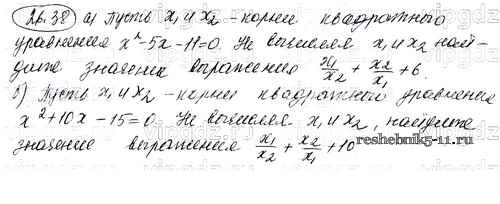 26.38 а) Пусть x₁ и x₂ - корни квадратного
уравнения x² - 5x - 11 = 0. Не вычисляя x₁ и x₂ най-
дите значение выражения x₁/x₂ + x₂/x₁ + 6.
б) Пусть x₁ и x₂ - корни квадратного уравнения
x² + 10x - 15 = 0. Не вычисляя x₁ и x₂, найдите
значение выражения x₁/x₂ + x₂/x₁ + 10
www.reshebnik5-11.ru